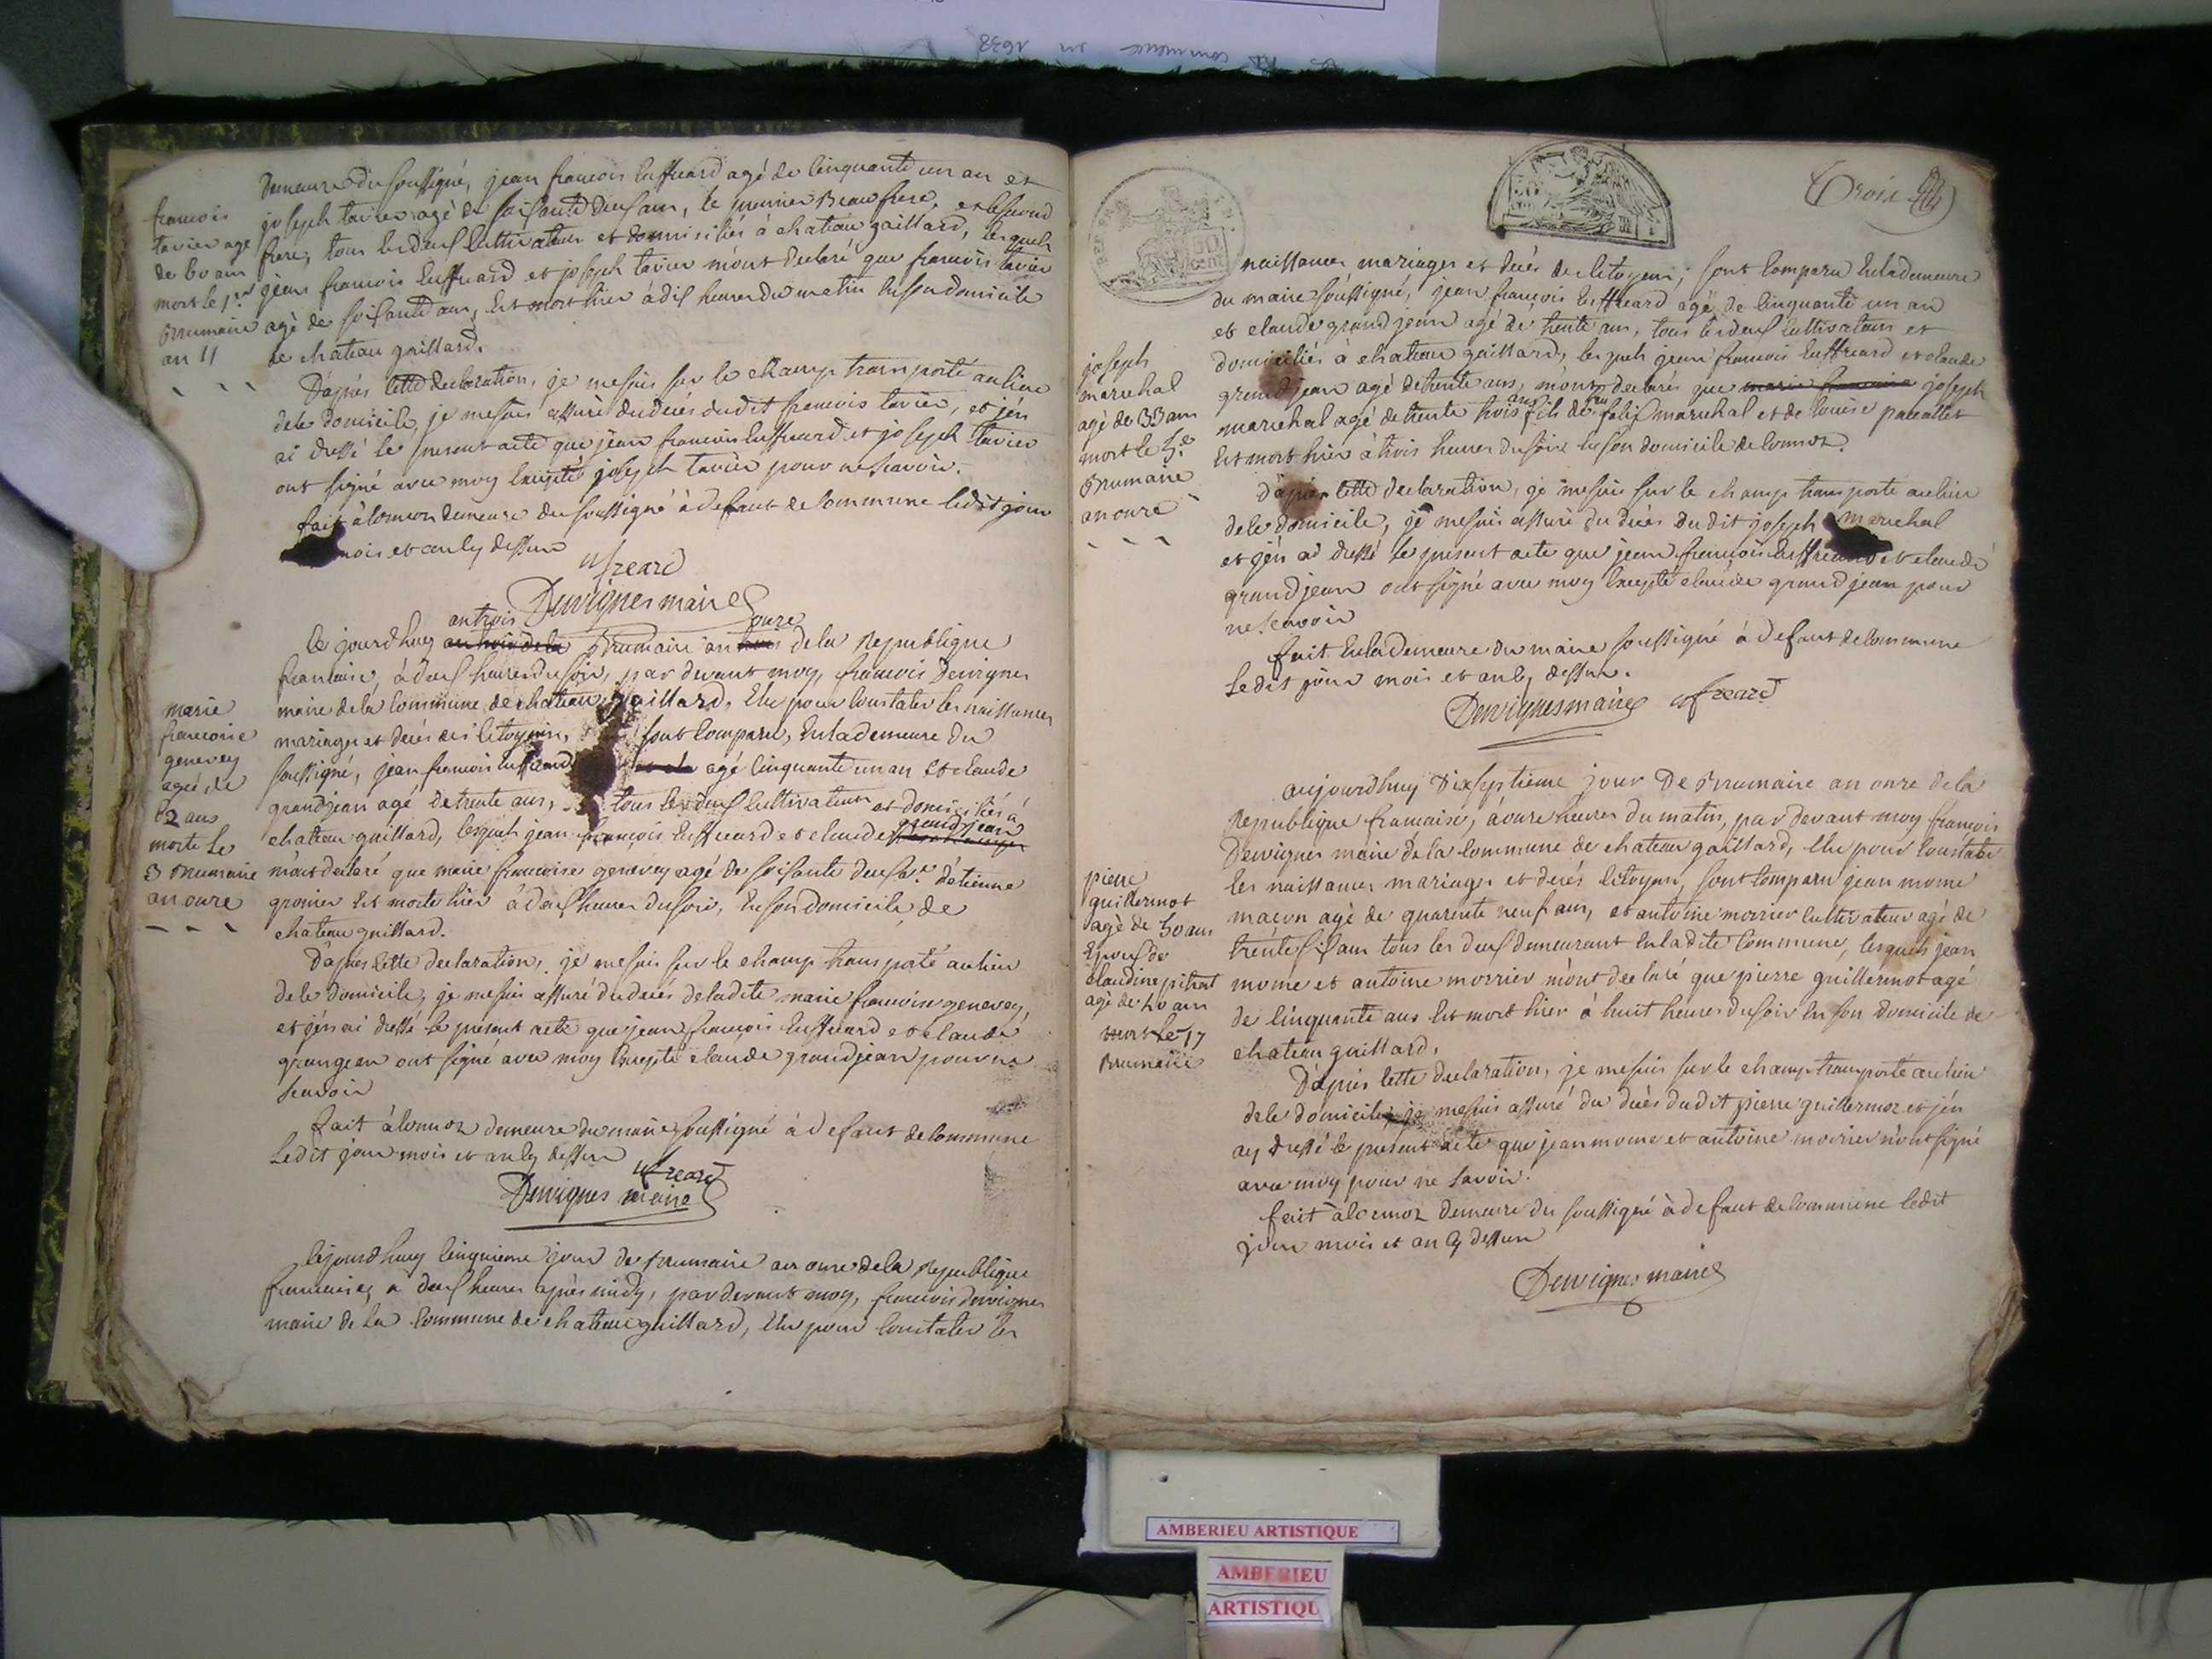 commence en 1638
Demeure du soussigné, jean francois luffreard agé de cinquante un an et
joseph tavier agé de soisante deux ans, le premier Beau frere, et le second
frere, tous les deux cultivateur et domiciliés à chateau gaillard, lesquels
jean francois luffreard et joseph tavier m'ont declaré que francois tavier
agé de soisante ans, est mort hier à dix heures du matin en son domicile
de chateau gaillard.
francois
tavier age
de 60 ans
mort le 1er
Brumaire
an 11
D'après cette declaration, je me suis sur le champ transporté au lieu
de le domicile, je me suis assuré du decés dudit francois tavier, et j'en
ai dressé le present acte que jean francois luffreard et joseph tavier
ont signé avec moy excepté joseph tavier pour ne scavoir.
fait à demeure du soussigné à defaut de commune ledit jour
mois et an cy dessus
freard
Dervignes maire
an trois onze
Ce jourd'huy Brumaire an de la Republique
francaise, à deux heures du soir, par devant moy, francois Dervignes
maire de la commune de chateau gaillard, élu pour constater les naissances
mariages et decés des citoyens, sont comparu, en la demeure du
soussigné, jean francois luffreard agé cinquante un an et claude
grandjean agé de trente ans, tous les deux cultivateurs et domiciliés à
chateau gaillard, lesquels jean françois luffreard et claude grandjean
m'ont declaré que marie francoise genevey agé de soisante deux ans d'etienne
est morte hier à deux heures du soir, en son domicile de
chateau gaillard.
marie
francoise
genevey
ageé de
62 ans
morte le
3 Brumaire
an onze
D'après cette declaration, je me suis sur le champ transporté au lieu
de le domicile, je me suis assuré du decés de ladite marie francoise genevey,
et j'en ai dressé le present acte que jean françois luffreard et claude
grangean ont signé avec moy excepté claude grandjean pour ne
scavoir
fait à demeure du maire soussigné à defaut de commune
Ledit jour mois et an cy dessus
freard
Dervignes maire
Cejourd'huy cinquieme jour de brumaire an onze de la Republique
francaise, a deux heures après midy, par devant moy, francois dervignes
maire de la commune de chateau gaillard, élu pour constater les
Trois
50 cent
naissances mariages et decés des citoyens; sont comparu en la demeure
du maire soussigné, jean françois luffreard agé de cinquante un an
et claude grand jean agé de trente ans, tous les deux cultivateurs et
domiciliés à chateau gaillard, lesquels jean francois luffreard et claude
grand jean agé de trente ans, m'ont declarés que marie francoise joseph
marechal agé de trente trois ans fils de feu felix marechal et de louise
est mort hier à trois heures du soir en son domicile de
joseph
marechal
agé de 33 ans
mort le 5e
Brumaire
an onze
D'après cette declaration, je me suis sur le champ transporté au lieu
de le domicile, je me suis assuré du decés du dit joseph marechal
et j'en ai dressé le present acte que jean francois luffreard et claude
grandjean ont signé avec moy excepté claude grand jean pour
ne scavoir
fait en la demeure du maire soussigné à defaut de commune
Ledit jour mois et an cy dessus.
Dervignes maire freard
aujourdhuy Dixseptieme jour De Brumaire an onze de la
Republique francaise, à onze heures du matin, par devant moy françois
Dervignes maire de la commune de chateau gaillard, élu pour constater
les naissances mariages et decés citoyens, sont comparu jean mome
maçon agé de quarente neuf ans, et antoine morrier cultivateur agé de
trente six ans tous les deux demeurant en ladite commune, lesquels jean
mome et antoine morrier m'ont declaré que pierre guillermot agé
de cinquante ans est mort hier à huit heures du soir en son domicile de
chateau gaillard.
pierre
guillermot
agé de 50 ans
Epoux de
claudine pitrat
agé de 40 ans
mort le 17
Brumaire
D'après cette declaration, je me suis sur le champ transporté au lieu
de le domicile, je me suis assuré du decés dudit pierre guillermoz et j'en
ay dressé le present acte que jean mome et antoine morrier n'ont signé
avec moy pour ne savoir.
fait à demeure du soussigné à defaut de commune ledit
jour mois et an cy dessus
Dervignes maire
AMBERIEU ARTISTIQUE
AMBERIEU
ARTISTIQU